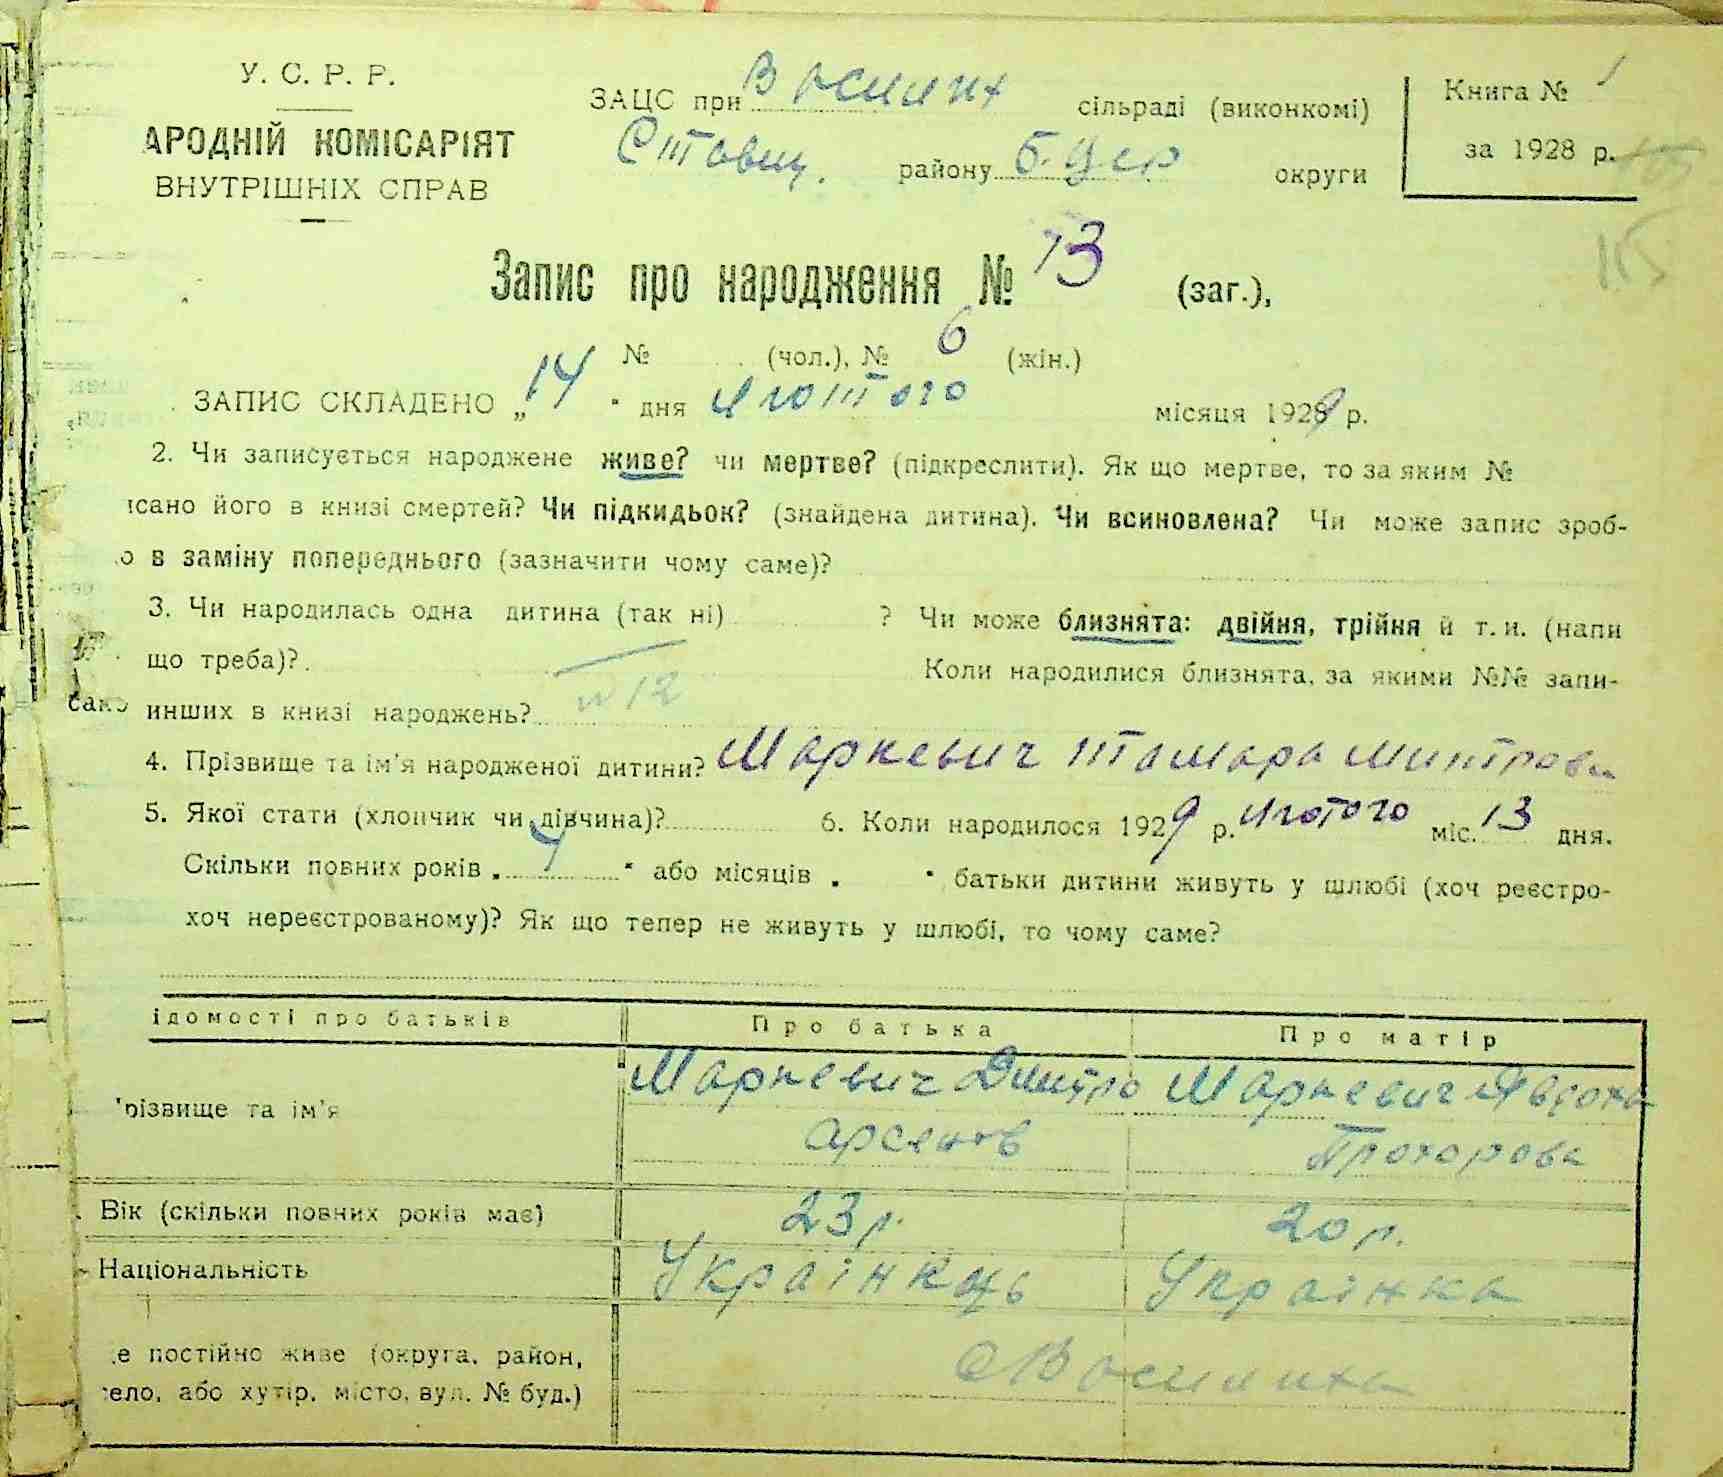 У. С. Р. Р.
АРОДНІЙ КОМІСАРІЯТ
ВНУТРІШНІХ СПРАВ
ЗАЦС при Василих сільраді (виконкомі)
Ставищ. району Б. Цер округи
Книга № 1
за 1928 р.
115
Запис про народження № 13 (заг.),
№ (чол.), № 6 (жін.)
ЗАПИС СКЛАДЕНО „14" дня Лютого місяця 1929 р.
2. Чи записується народжене живе? чи мертве? (підкреслити). Як що мертве, то за яким №
ісано його в книзі смертей? Чи підкидьок? (знайдена дитина). Чи всиновлена? Чи може запис зроб-
о в заміну попереднього (зазначити чому саме)?
3. Чи народилась одна дитина (так ні) ? Чи може близнята: двійня, трійня й т. и. (напи
що треба)? Коли народилися близнята, за якими №№ запи-
сано инших в книзі народжень? № 12
4. Прізвище та ім'я народженої дитини? Маркевич Тамара Митрова
5. Якої стати (хлопчик чи дівчина)? 6. Коли народилося 1929 р. Лютого міс. 13 дня.
Скільки повних років „ 4 " або місяців „ " батьки дитини живуть у шлюбі (хоч реєстро-
хоч нереєстрованому)? Як що тепер не живуть у шлюбі, то чому саме?
ідомості про батьків Про батька Про матір
різвище та ім'я Маркевич Дмитро Маркевич Явдоха
Арсенов Прохорова
Вік (скільки повних років має) 23 р. 20 р.
Національність Українкць Українка
е постійно живе (округа, район,
ело, або хутір, місто, вул. № буд.) с Василиха